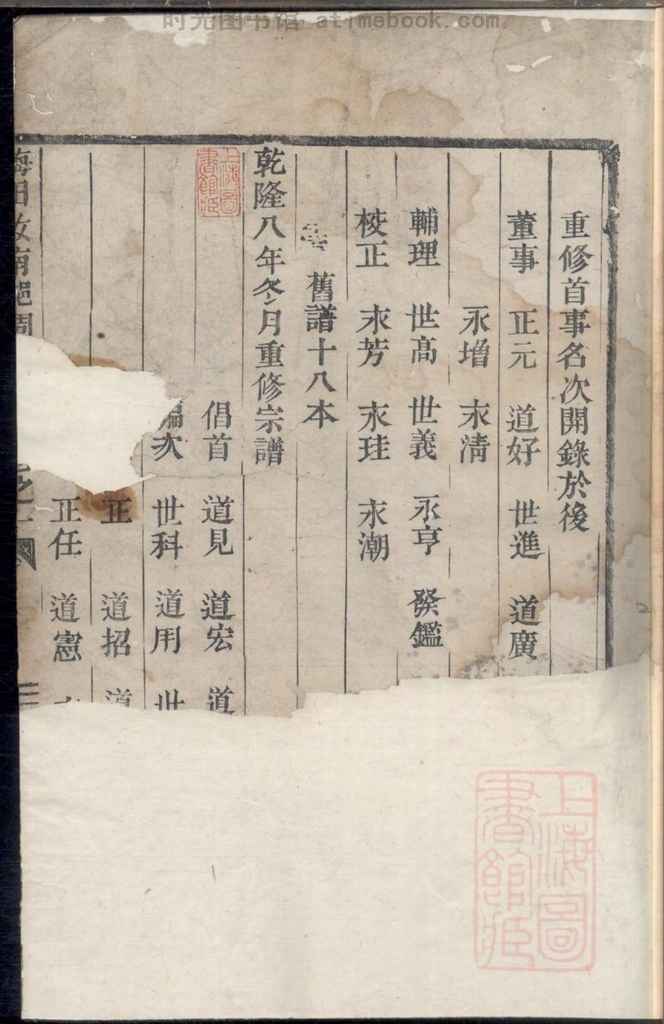 时光图书馆 atimebook.com
重修首事名次開錄於後
董事 正元 道好 世進 道廣
永增 永清
輔理 世高 世義 永亨 發鑑
校正 永芳 永珪 永潮
舊譜十八本
乾隆八年冬月重修宗譜
倡首 道見 道宏 道
編次 世科 道用 世
正 道招 道
正任 道憲
上海圖書館藏
上海圖書館藏